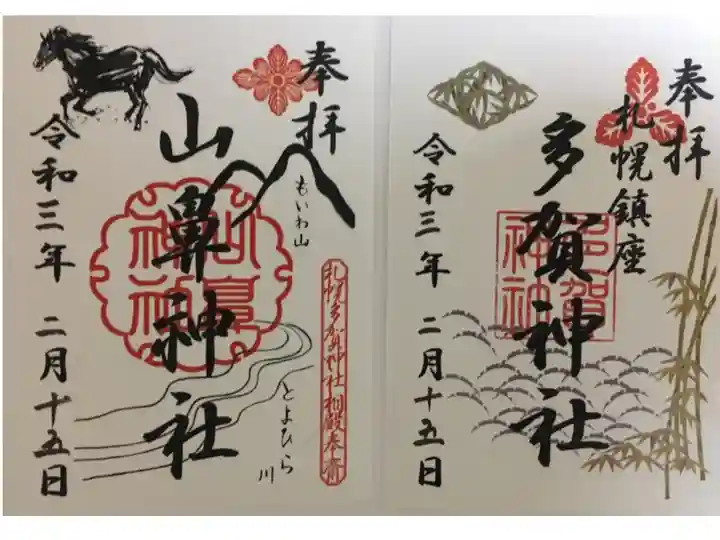 奉拝
札幌鎮座
多賀神社
神社
令和三年 二月十五日
奉拝
もいわ山
札幌多賀神社相殿奉斎
とよひら
川
山鼻神社
山鼻
神社
令和三年 二月十五日